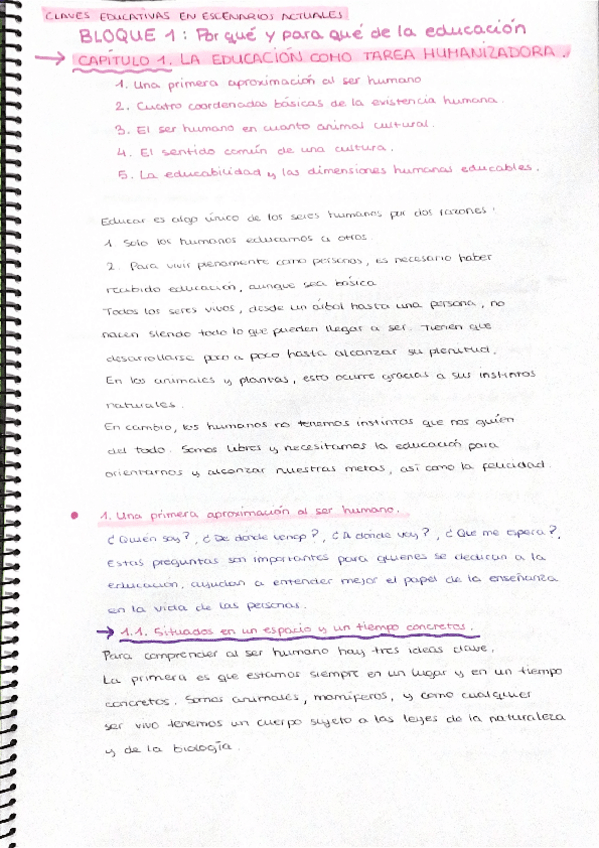 CLAVES EDUCATIVAS EN ESCENARIOS ACTUALES
BLOQUE 1: Por qué y para qué de la educación
→ CAPÍTULO 1. LA EDUCACIÓN COMO TAREA HUMANIZADORA.
1. Una primera aproximación al ser humano
2. Cuatro coordenadas básicas de la existencia humana.
3. El ser humano en cuanto animal cultural.
4. El sentido común de una cultura.
5. La educabilidad y las dimensiones humanas educables.
Educar es algo único de los seres humanos por dos razones:
1. Solo los humanos educamos a otros.
2. Para vivir plenamente como personas, es necesario haber
recibido educación, aunque sea básica
Todos los seres vivos, desde un árbol hasta una persona, no
nacen siendo todo lo que pueden llegar a ser. Tienen que
desarrollarse poco a poco hasta alcanzar su plenitud.
En los animales y plantas, esto ocurre gracias a sus instintos
naturales.
En cambio, los humanos no tenemos instintos que nos guíen
del todo. Somos libres y necesitamos la educación para
orientarnos y alcanzar nuestras metas, así como la felicidad.
• 1. Una primera aproximación al ser humano.
¿Quién soy?, ¿De dónde vengo?, ¿A dónde voy?, ¿Qué me espera?,
Estas preguntas son importantes para quienes se dedican a la
educación, ayudan a entender mejor el papel de la enseñanza
en la vida de las personas.
→ 1.1. Situados en un espacio y un tiempo concretos.
Para comprender al ser humano hay tres ideas clave.
La primera es que estamos siempre en un lugar y en un tiempo
concretos. Somos animales, mamíferos, y como cualquier
ser vivo tenemos un cuerpo sujeto a las leyes de la naturaleza
y de la biología.